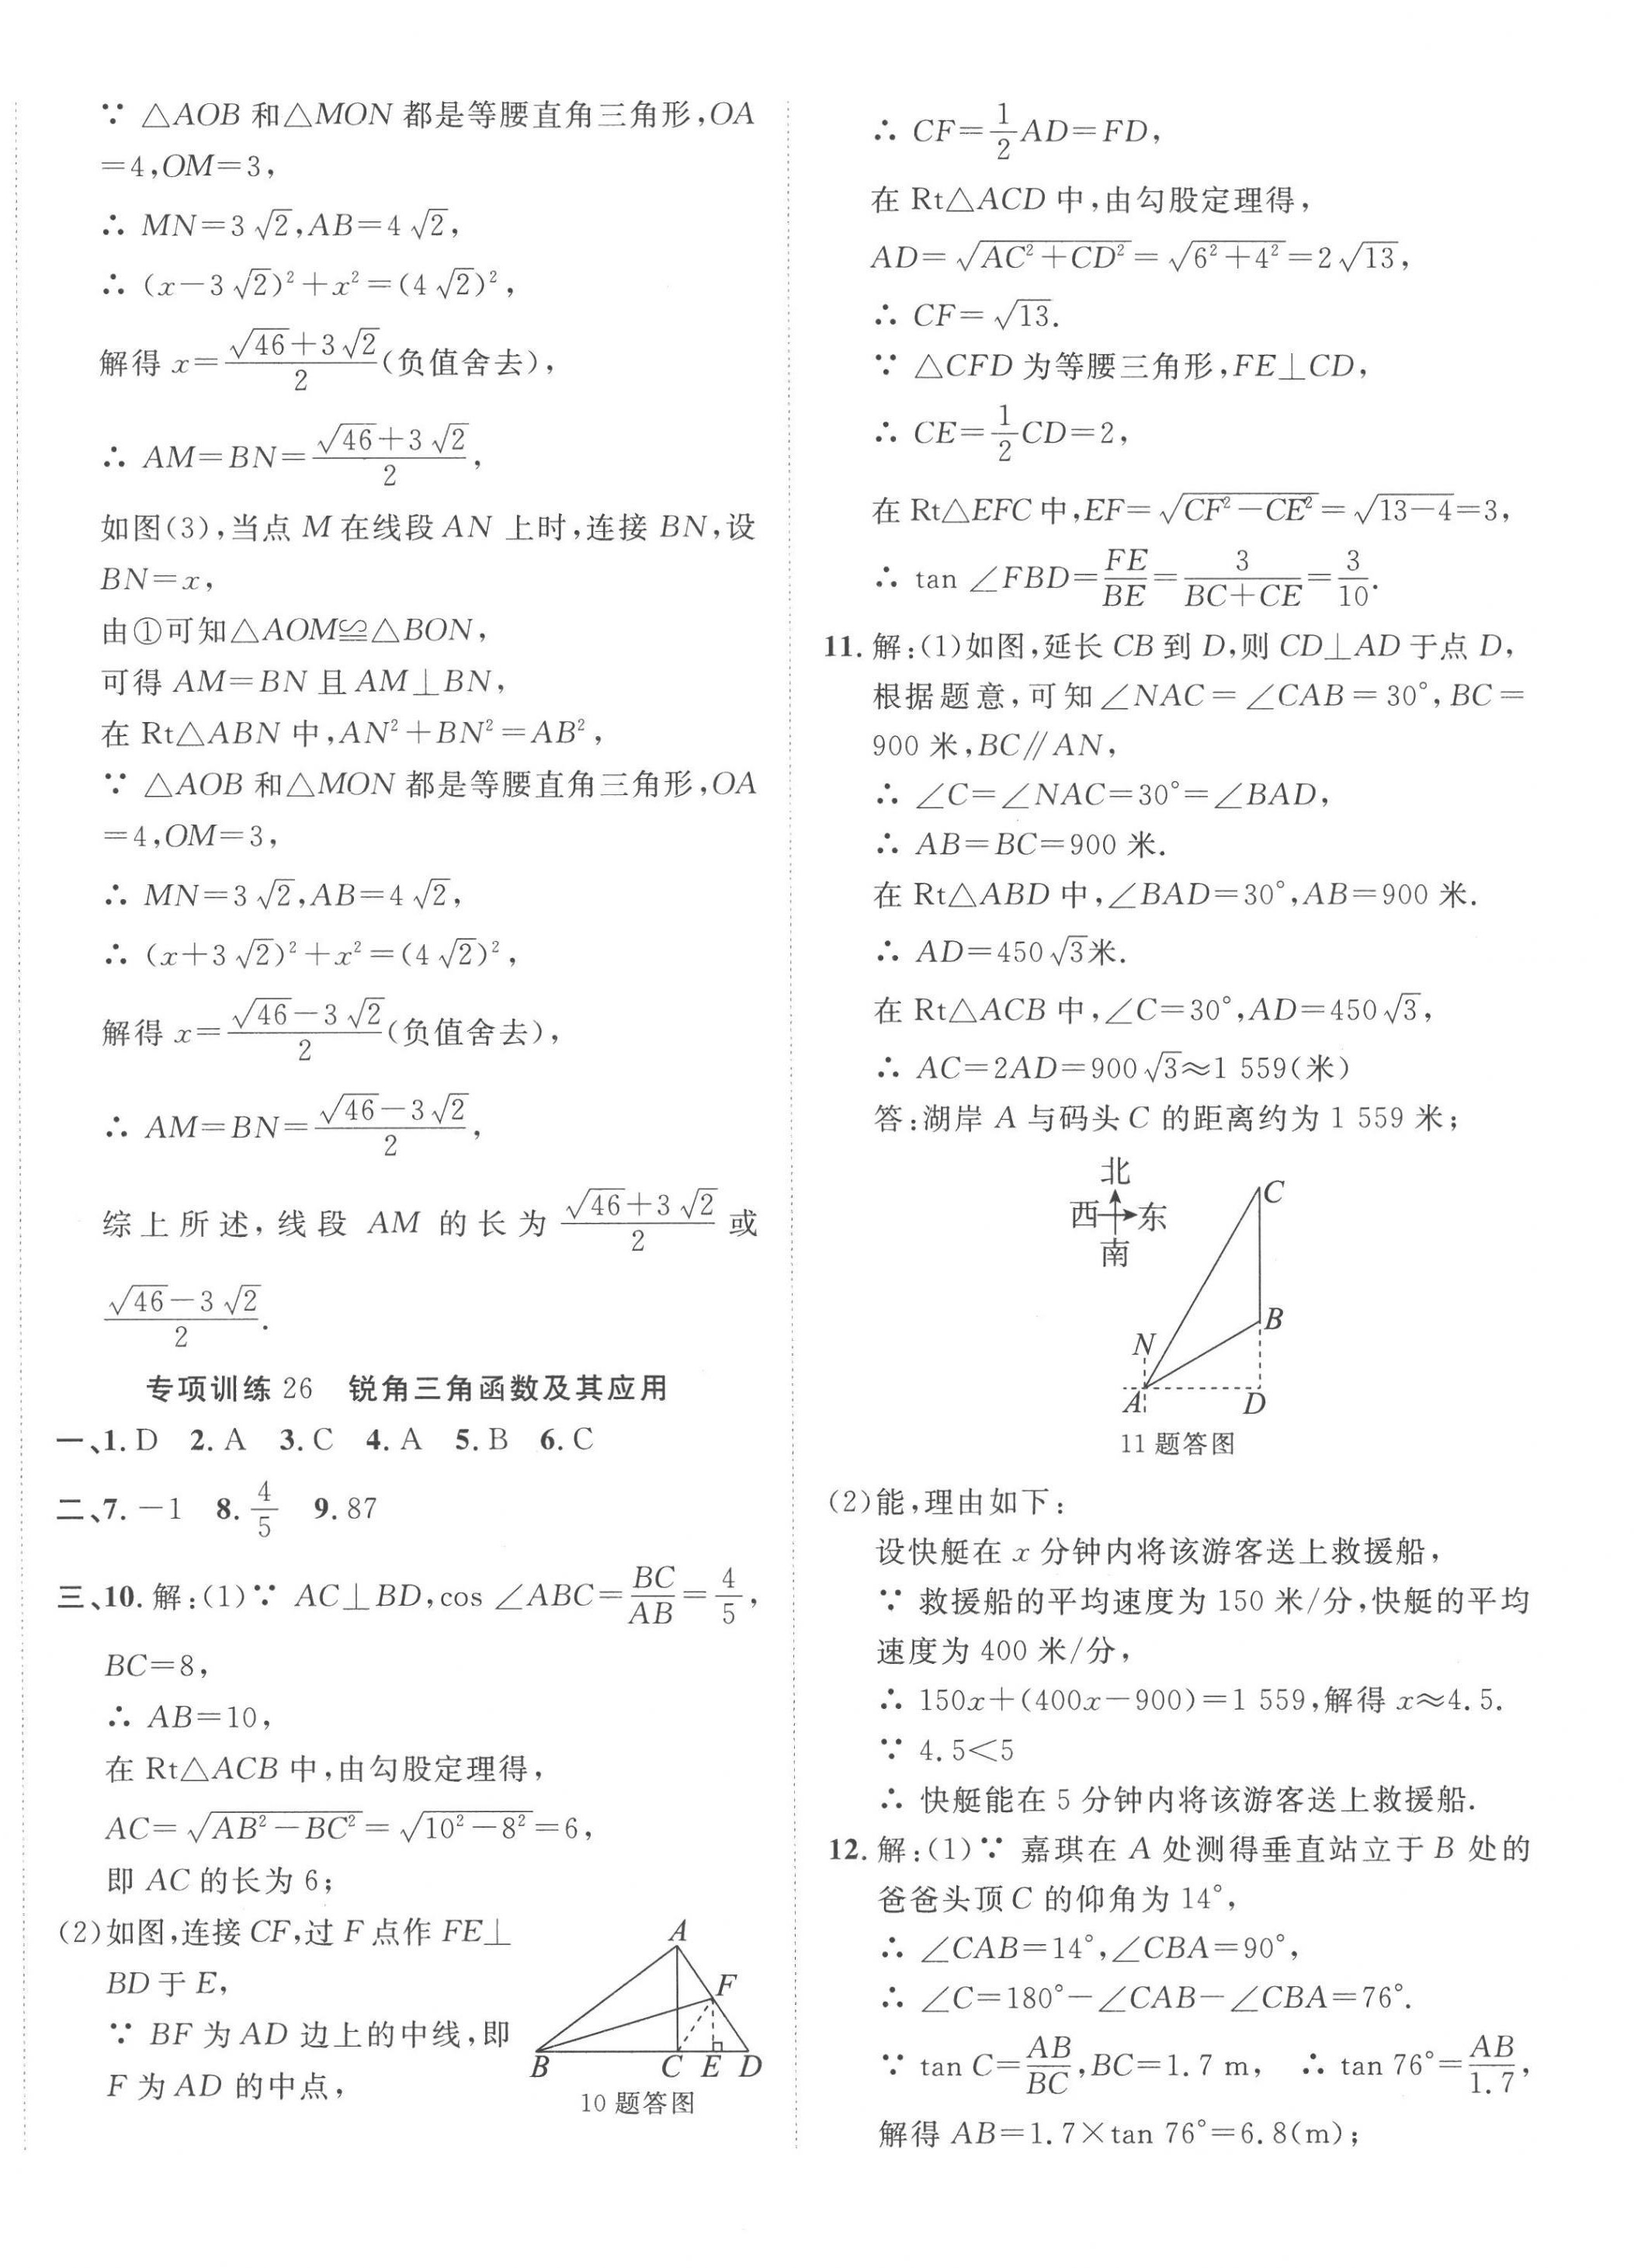 ∵ △AOB 和△MON 都是等腰直角三角形,OA
=4,OM=3,
∴ MN=3√2,AB=4√2,
∴ (x-3√2)²+x²=(4√2)²,
解得 x=(√46+3√2)/2(负值舍去),
∴ AM=BN=(√46+3√2)/2,
如图(3),当点 M 在线段 AN 上时,连接 BN,设
BN=x,
由①可知△AOM≌△BON,
可得 AM=BN 且 AM⊥BN,
在 Rt△ABN 中,AN²+BN²=AB²,
∵ △AOB 和△MON 都是等腰直角三角形,OA
=4,OM=3,
∴ MN=3√2,AB=4√2,
∴ (x+3√2)²+x²=(4√2)²,
解得 x=(√46-3√2)/2(负值舍去),
∴ AM=BN=(√46-3√2)/2,
综上所述,线段 AM 的长为 (√46+3√2)/2 或
(√46-3√2)/2.
专项训练 26 锐角三角函数及其应用
一、1. D 2. A 3. C 4. A 5. B 6. C
二、7. -1 8. 4/5 9. 87
三、10. 解:(1)∵ AC⊥BD,cos ∠ABC=BC/AB=4/5,
BC=8,
∴ AB=10,
在 Rt△ACB 中,由勾股定理得,
AC=√(AB²-BC²)=√(10²-8²)=6,
即 AC 的长为 6;
(2)如图,连接 CF,过 F 点作 FE⊥
BD 于 E,
∵ BF 为 AD 边上的中线,即
F 为 AD 的中点,
A
F
B C E D
10 题答图
∴ CF=1/2AD=FD,
在 Rt△ACD 中,由勾股定理得,
AD=√(AC²+CD²)=√(6²+4²)=2√13,
∴ CF=√13.
∵ △CFD 为等腰三角形,FE⊥CD,
∴ CE=1/2CD=2,
在 Rt△EFC 中,EF=√(CF²-CE²)=√(13-4)=3,
∴ tan ∠FBD=FE/BE=3/(BC+CE)=3/10.
11. 解:(1)如图,延长 CB 到 D,则 CD⊥AD 于点 D,
根据题意,可知∠NAC=∠CAB=30°,BC=
900 米,BC∥AN,
∴ ∠C=∠NAC=30°=∠BAD,
∴ AB=BC=900 米.
在 Rt△ABD 中,∠BAD=30°,AB=900 米.
∴ AD=450√3米.
在 Rt△ACB 中,∠C=30°,AD=450√3,
∴ AC=2AD=900√3≈1 559(米)
答:湖岸 A 与码头 C 的距离约为 1 559 米;
北
西 东
南
C
B
N
A D
11 题答图
(2)能,理由如下:
设快艇在 x 分钟内将该游客送上救援船,
∵ 救援船的平均速度为 150 米/分,快艇的平均
速度为 400 米/分,
∴ 150x+(400x-900)=1 559,解得 x≈4.5.
∵ 4.5<5
∴ 快艇能在 5 分钟内将该游客送上救援船.
12. 解:(1)∵ 嘉琪在 A 处测得垂直站立于 B 处的
爸爸头顶 C 的仰角为 14°,
∴ ∠CAB=14°,∠CBA=90°,
∴ ∠C=180°-∠CAB-∠CBA=76°.
∵ tan C=AB/BC,BC=1.7 m, ∴ tan 76°=AB/1.7,
解得 AB=1.7×tan 76°=6.8(m);